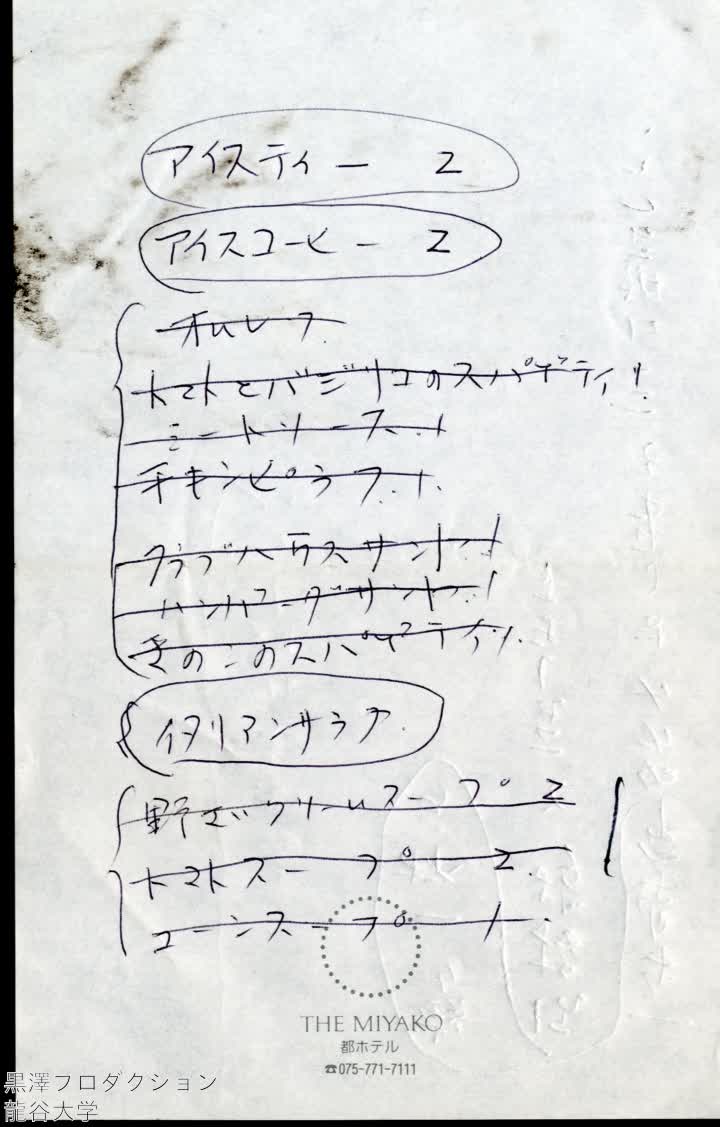 アイスティー 2
アイスコーヒー 2
オムレツ
トマトとバジリコのスパゲティ 1
ミートソース 1
チキンピラフ 1
クラブハウスサンド 1
ハンバーグサンド 1
きのこのスパゲティ 1
イタリアンサラダ
野菜クリームスープ 2
トマトスープ 2
コーンスープ 1
THE MIYAKO
都ホテル
☎075-771-7111
黒澤プロダクション
龍谷大学